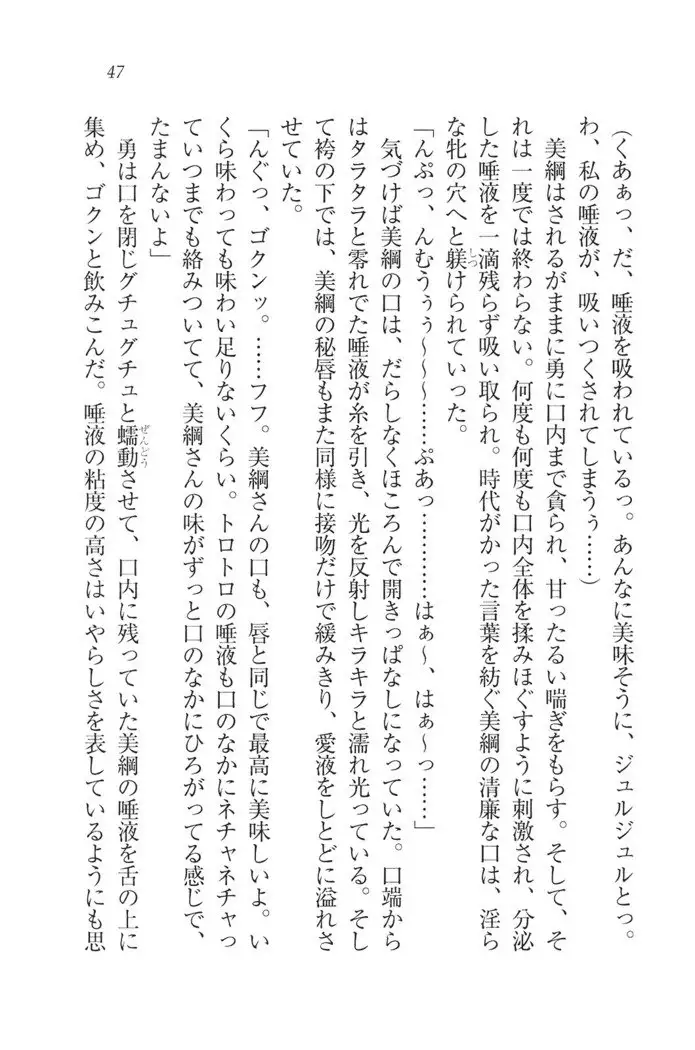 47
(くあぁっ、だ、唾液を吸われているっ。あんなに美味そうに、ジュルジュルとっ。
わ、私の唾液が、吸いつくされてしまうぅ……)
　美綱はされるがままに勇に口内まで貪られ、甘ったるい喘ぎをもらす。そして、そ
れは一度では終わらない。何度も何度も口内全体を揉みほぐすように刺激され、分泌
した唾液を一滴残らず吸い取られ。時代がかった言葉を紡ぐ美綱の清廉な口は、淫ら
な牝の穴へと躾けられていった。
しつ
「んぷっ、んむうぅぅ～～～……ぷあっ…………はぁ～、はぁ～っ……」
　気づけば美綱の口は、だらしなくほころんで開きっぱなしになっていた。口端から
はタラタラと零れでた唾液が糸を引き、光を反射しキラキラと濡れ光っている。そし
て袴の下では、美綱の秘唇もまた同様に接吻だけで緩みきり、愛液をしとどに溢れさ
せていた。
「んぐっ、ゴクンッ。……フフ。美綱さんの口も、唇と同じで最高に美味しいよ。い
くら味わっても味わい足りないくらい。トロトロの唾液も口のなかにネチャネチャっ
ていつまでも絡みついてて、美綱さんの味がずっと口のなかにひろがってる感じで、
たまんないよ」
　勇は口を閉じグチュグチュと蠕動させて、口内に残っていた美綱の唾液を舌の上に
ぜんどう
集め、ゴクンと飲みこんだ。唾液の粘度の高さはいやらしさを表しているようにも思